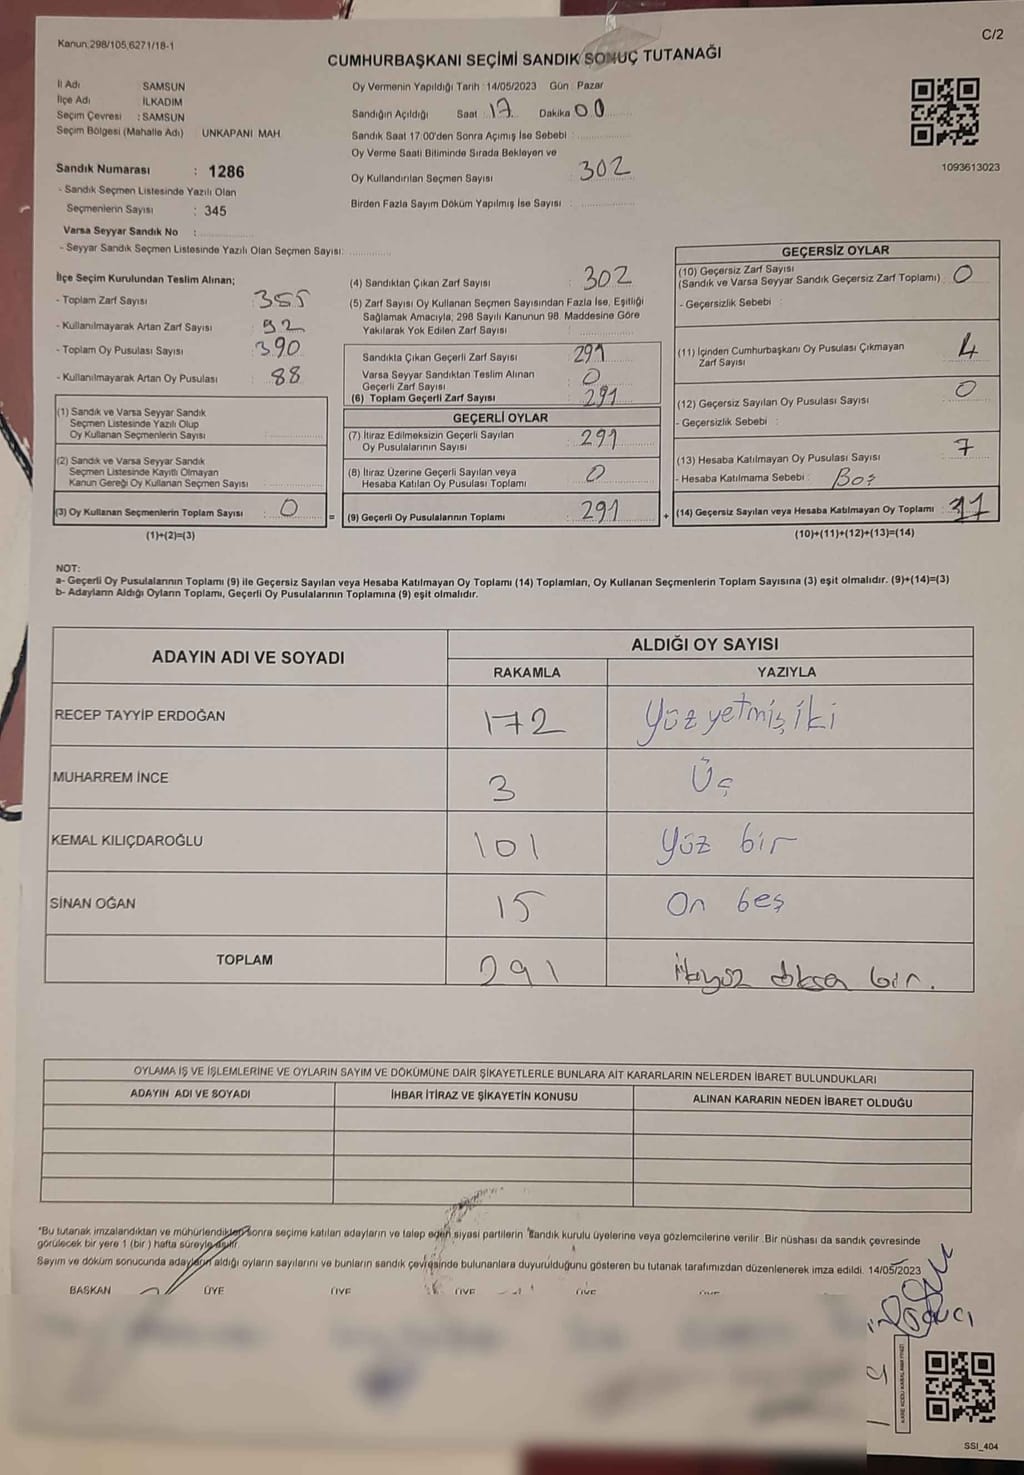 Kanun:298/105,6271/18-1
C/2
CUMHURBAŞKANI SEÇİMİ SANDIK SONUÇ TUTANAĞI
İl Adı SAMSUN
İlçe Adı İLKADIM
Seçim Çevresi : SAMSUN
Seçim Bölgesi (Mahalle Adı) UNKAPANI MAH
Sandık Numarası : 1286
- Sandık Seçmen Listesinde Yazılı Olan
Seçmenlerin Sayısı : 345
Varsa Seyyar Sandık No :
- Seyyar Sandık Seçmen Listesinde Yazılı Olan Seçmen Sayısı:
Oy Vermenin Yapıldığı Tarih : 14/05/2023 Gün : Pazar
Sandığın Açıldığı Saat 17 Dakika 00
Sandık Saat 17:00'den Sonra Açımış İse Sebebi :
Oy Verme Saati Bitiminde Sırada Bekleyen ve
Oy Kullandırılan Seçmen Sayısı : 302
Birden Fazla Sayım Döküm Yapılmış İse Sayısı :
1093613023
İlçe Seçim Kurulundan Teslim Alınan;
- Toplam Zarf Sayısı : 355
- Kullanılmayarak Artan Zarf Sayısı : 52
- Toplam Oy Pusulası Sayısı : 390
- Kullanılmayarak Artan Oy Pusulası : 88
(1) Sandık ve Varsa Seyyar Sandık
Seçmen Listesinde Yazılı Olup
Oy Kullanan Seçmenlerin Sayısı :
(2) Sandık ve Varsa Seyyar Sandık
Seçmen Listesinde Kayıtlı Olmayan
Kanun Gereği Oy Kullanan Seçmen Sayısı :
(3) Oy Kullanan Seçmenlerin Toplam Sayısı : 0
(1)+(2)=(3)
=
(4) Sandıktan Çıkan Zarf Sayısı : 302
(5) Zarf Sayısı Oy Kullanan Seçmen Sayısından Fazla İse, Eşitliği
Sağlamak Amacıyla, 298 Sayılı Kanunun 98. Maddesine Göre
Yakılarak Yok Edilen Zarf Sayısı :
Sandıkta Çıkan Geçerli Zarf Sayısı : 291
Varsa Seyyar Sandıktan Teslim Alınan
Geçerli Zarf Sayısı : 0
(6) Toplam Geçerli Zarf Sayısı : 291
GEÇERLİ OYLAR
(7) İtiraz Edilmeksizin Geçerli Sayılan
Oy Pusulalarının Sayısı : 291
(8) İtiraz Üzerine Geçerli Sayılan veya
Hesaba Katılan Oy Pusulası Toplamı : 0
(9) Geçerli Oy Pusulalarının Toplamı : 291
+
GEÇERSİZ OYLAR
(10) Geçersiz Zarf Sayısı
(Sandık ve Varsa Seyyar Sandık Geçersiz Zarf Toplamı) : 0
- Geçersizlik Sebebi :
(11) İçinden Cumhurbaşkanı Oy Pusulası Çıkmayan
Zarf Sayısı : 4
(12) Geçersiz Sayılan Oy Pusulası Sayısı : 0
- Geçersizlik Sebebi :
(13) Hesaba Katılmayan Oy Pusulası Sayısı : 7
- Hesaba Katılmama Sebebi : Boş
(14) Geçersiz Sayılan veya Hesaba Katılmayan Oy Toplamı : 11
(10)+(11)+(12)+(13)=(14)
NOT:
a- Geçerli Oy Pusulalarının Toplamı (9) ile Geçersiz Sayılan veya Hesaba Katılmayan Oy Toplamı (14) Toplamları, Oy Kullanan Seçmenlerin Toplam Sayısına (3) eşit olmalıdır. (9)+(14)=(3)
b- Adayların Aldığı Oyların Toplamı, Geçerli Oy Pusulalarının Toplamına (9) eşit olmalıdır.
ADAYIN ADI VE SOYADI
ALDIĞI OY SAYISI
RAKAMLA YAZIYLA
RECEP TAYYİP ERDOĞAN 172 Yüz yetmiş iki
MUHARREM İNCE 3 Üç
KEMAL KILIÇDAROĞLU 101 Yüz bir
SİNAN OĞAN 15 On beş
TOPLAM 291 bir.
OYLAMA İŞ VE İŞLEMLERİNE VE OYLARIN SAYIM VE DÖKÜMÜNE DAİR ŞİKAYETLERLE BUNLARA AİT KARARLARIN NELERDEN İBARET BULUNDUKLARI
ADAYIN ADI VE SOYADI İHBAR İTİRAZ VE ŞİKAYETİN KONUSU ALINAN KARARIN NEDEN İBARET OLDUĞU
*Bu tutanak imzalandıktan ve mühürlendikten sonra seçime katılan adayların ve talep eden siyasi partilerin sandık kurulu üyelerine veya gözlemcilerine verilir. Bir nüshası da sandık çevresinde
görülecek bir yere 1 (bir) hafta süreyle asılır.
Sayım ve döküm sonucunda adayların aldığı oyların sayılarını ve bunların sandık çevresinde bulunanlara duyurulduğunu gösteren bu tutanak tarafımızdan düzenlenerek imza edildi. 14/05/2023
BAŞKAN ÜYE ÜYE ÜYE ÜYE
SSI_404